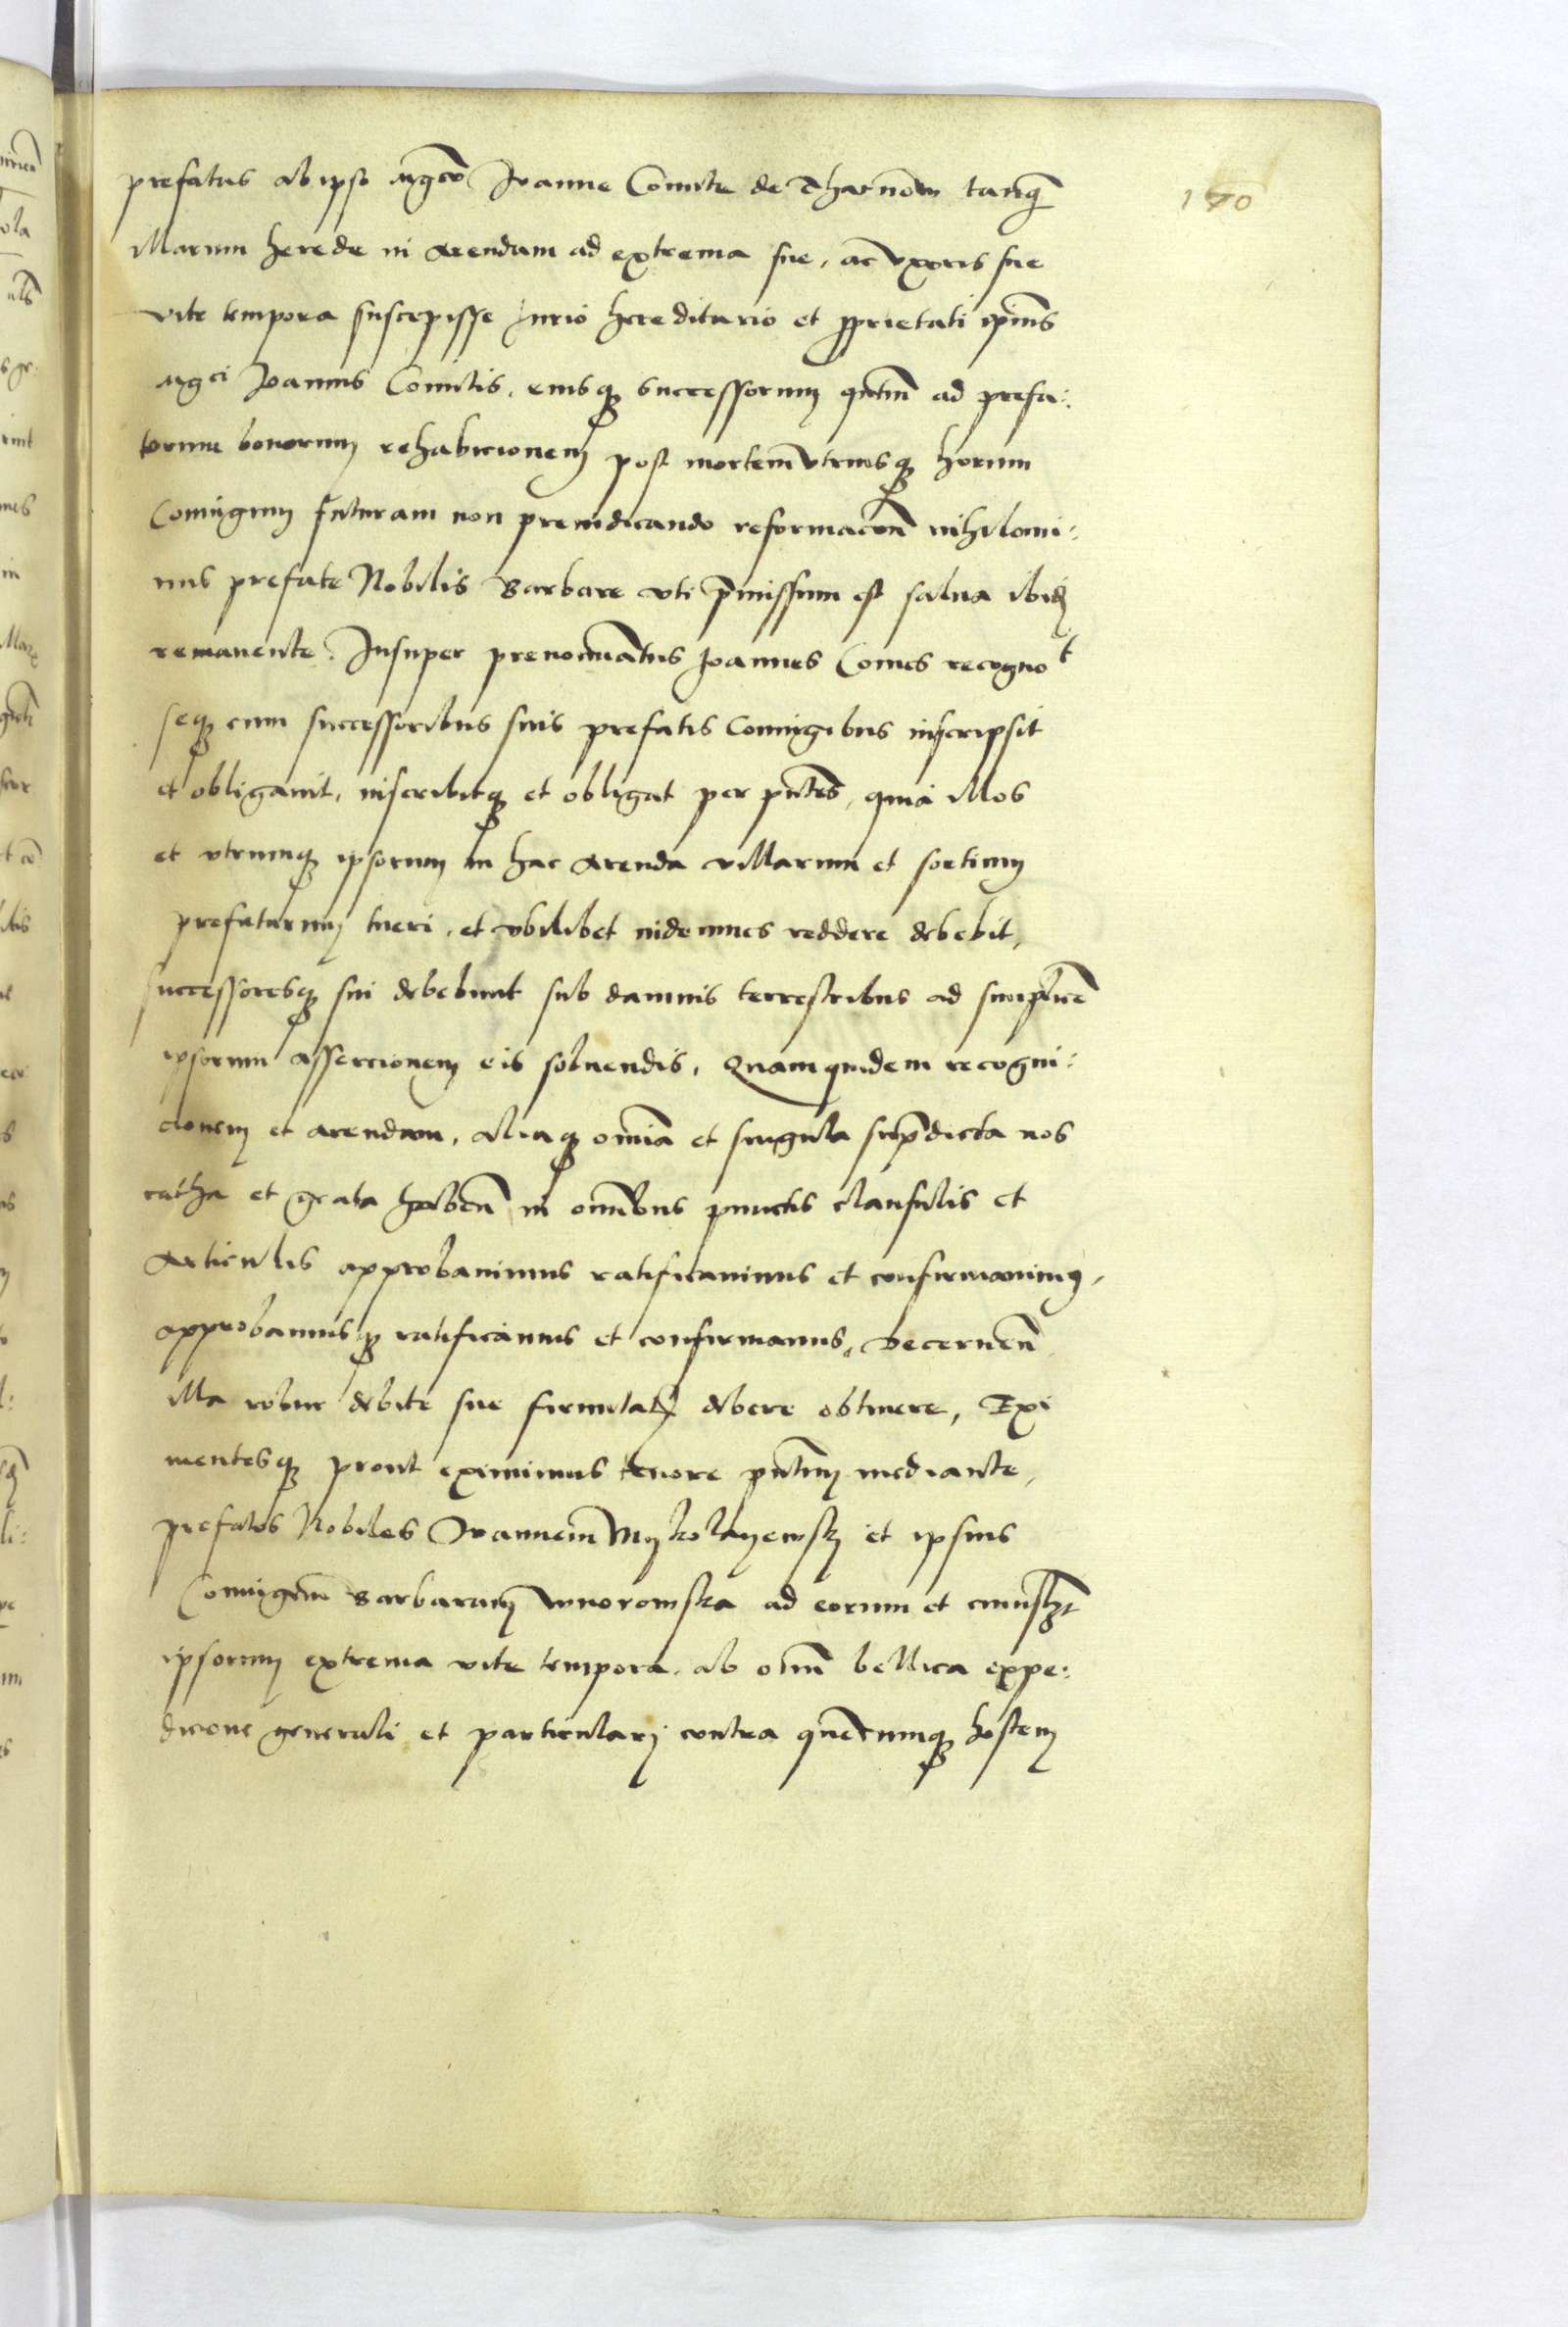 prefatus ab ipso Mgco Joanne Comite de Tharnow tanq̃
illarum herede in arendam ad extrema sue, ac vxoris sue
vite tempora suscepisse Jurio hereditario et pprietati ipsius
Mgci Joannis Comitis, eiusq; successorum qntũ ad prefa:
torum bonorum rehabicionem post mortem vtriusq; horum
Coniugum futuram non preiudicando reformacõn nihilomi:
nus prefate Nobilis Barbare vti p̃missum est salua ibid
remanente. Insuper prenominãtus Joannes Comes recognot
seq; cum successoribus suis prefatis Coniugibus inscripsit
et obligauit, inscribitq; et obligat per pñtes, quia illos
et vtrumq; ipsorum in hac arenda villarum et sortium
prefatarum tueri, et vbilibet indemnes reddere debebit,
successoresq; sui debebunt sub damnis terrestribus ad simplicẽ
ipsorum assercionem eis soluendis, Quamquidem recogni:
cionem et arendam, aliaq; omĩa et singula sup̃dicta nos
ratha et grata habeñ in omĩbus punctis clausulis et
Articulis approbauimus ratificauimus et confirmauimus,
approbamusq; ratificamus et confirmamus, Decerneñ
illa robur debite sue firmitat debere obtinere, Exi
mentesq; prout eximimus tenore pñtium mediante,
prefatos Nobiles Joannem Mykolayewsky et ipsius
Coniugem Barbaram Wnorowska ad eorum et cuiuslzt
ipsorum extrema vite tempora, ab omĩ bellica expe:
dicione generali et particularj contra quẽcumq; hostem
170